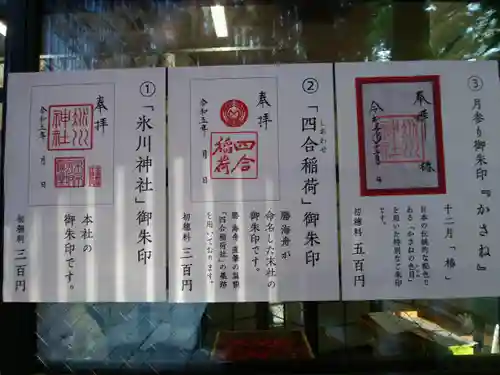 ①
「氷川神社」御朱印
奉拝
氷川
神社
令和五年　月　日
本社の
御朱印です。
初穂料　三百円
②
「四合稲荷」御朱印
しあわせ
奉拝
四合
稲荷
令和五年　月　日
勝海舟が
命名した末社の
御朱印です。
勝海舟直筆の扁額
「四合稲荷社」の墨跡
を用いております。
初穂料　三百円
③
月参り御朱印『かさね』
奉拝
椿
十二月「椿」
日本の伝統的な配色で
ある「かさねの色目」
を用いた特別なご朱印
です。
初穂料　五百円